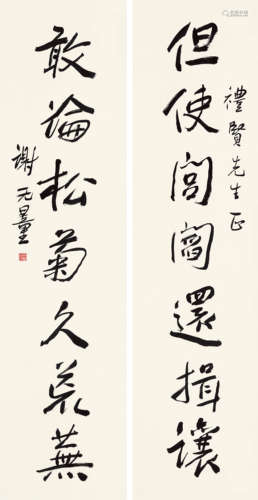 禮賢先生正
但使閭閻還揖讓
敢論松菊久荒蕪
謝无量